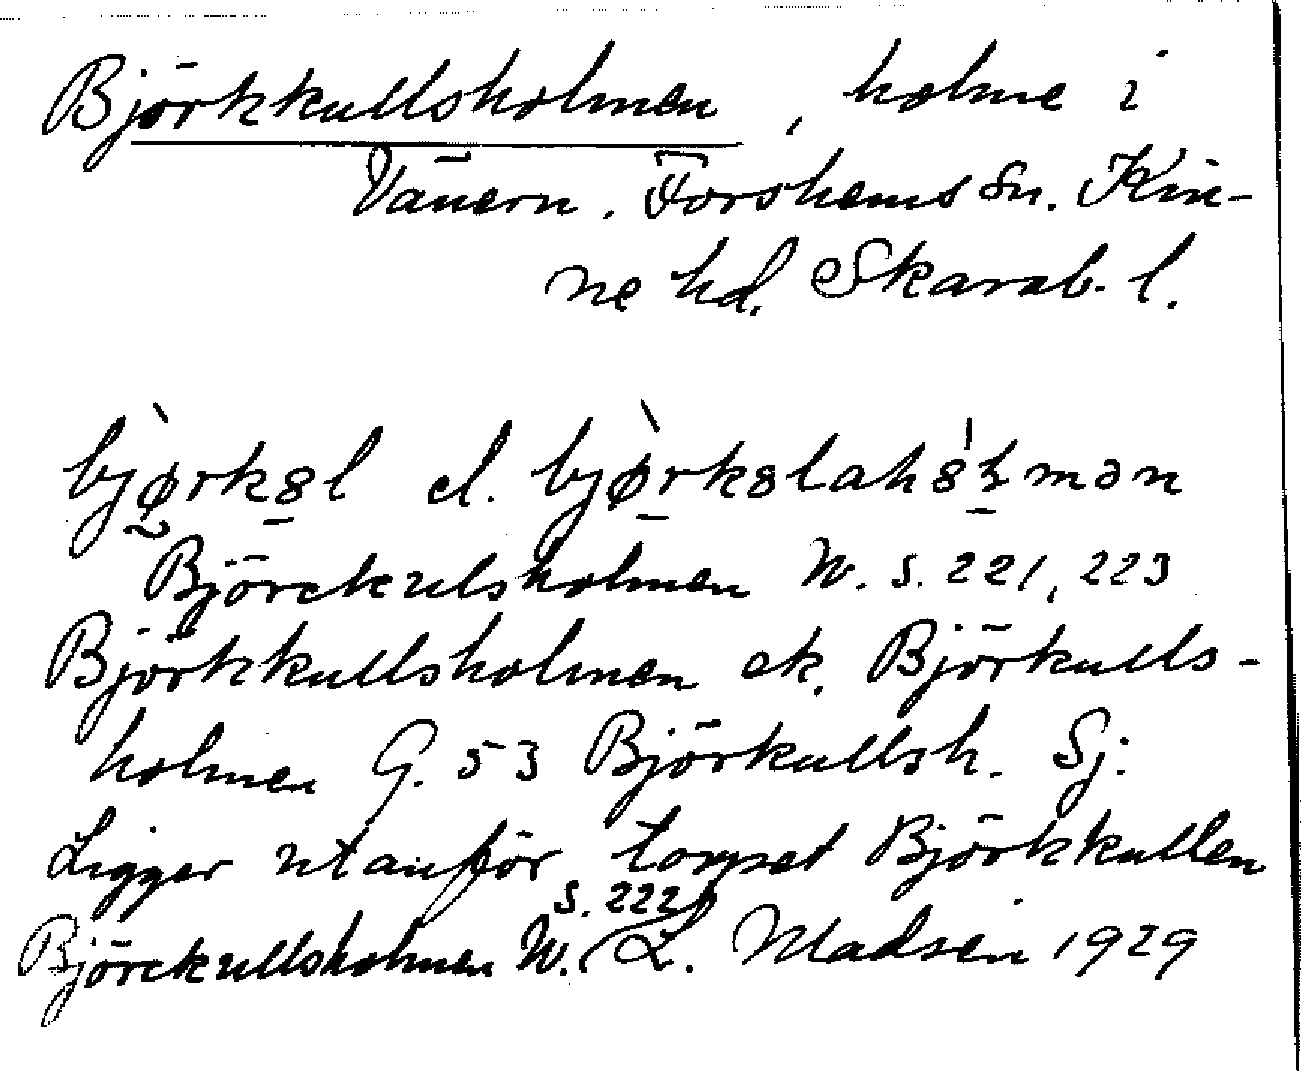 Björkkullsholmen, holme i
Vänern. Forshems sn. Kin-
ne hd. Skarab. l.
bjørk8l el. bjørk8lah8ɫmən
Björckulsholmen W. s. 221, 223
Björkkullsholmen ek. Björkulls-
holmen G. 53 Björkullsh. Sj:
Ligger utanför torpet Björkkullen
s. 222
Björckullsholmen W. L. Madsén 1929